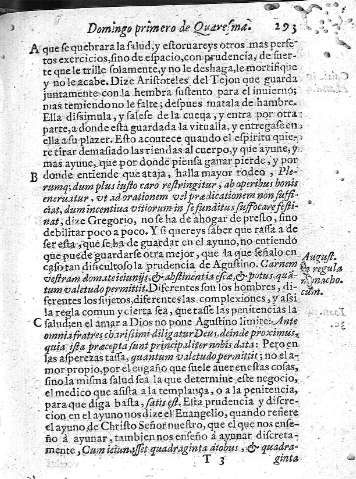 Domingo primero de Quaresma. 293
A que se quebrara la salud, y estoruareys otros mas perfe-
tos exercicios, sino de espacio, con prudencia, de suer-
te que le trille solamente, y no le deshaga, le mortifique
y no le acabe. Dize Aristoteles del Tejon que guarda
juntamente con la hembra sustento para el inuierno;
mas temiendo no le falte; despues matala de hambre.
Ella dissimula, y salese de la cueua, y entra por otra
parte, a donde esta guardada la vitualla, y entregase en
ella a su plazer. Esto acontece quando el espiritu quie-
re tirar demasiado las riendas al cuerpo, y que ayune, y
mas ayune, que por donde piensa ganar pierde, y por
B donde entiende que ataja, halla mayor rodeo, Ple-
rumq; dum plus iusto caro restringitur, ab operibus bonis
eneruatur, vt ad orationem vel prædicationem non suffi-
ciat, dum incentiua vitiorum in se funditus suffocare festi-
nat, dize Gregorio, no se ha de ahogar de presto, sino
debilitar poco a poco. Y si quereys saber que tassa a de
ser esta, que se ha de guardar en el ayuno, no entiendo
que puede guardarse otra mejor, que la que señalo en
caso tan discultoso la prudencia de Agustino. Carnem
vestram domate ieiunijs, & abstinentia escæ, & potus, quã-
tum valetudo permittit. Diferentes son los hombres, di-
ferentes los sujetos, diferentes las complexiones, y assi
la regla comun y cierta sea, que tasse las penitencias la
C salud: en el amar a Dios no pone Agustino limite: Ante
omnia fratres charissimi diligatur Deus, deinde proximus,
quia ista præcepta sunt principaliter nobis data: Pero en
las asperezas tassa, quantum valetudo permittit; no el a-
mor propio, por el engaño que suele auer en estas cosas,
sino la misma salud sea la que determine este negocio,
el medico que assista a la templança, o a la penitencia,
para que diga basta, satis est. Esta prudencia y discre-
cion en el ayuno nos dize el Euangelio, quando refiere
el ayuno de Christo Señor nuestro, que el que nos ense-
ño â ayunar, tambien nos enseño â ayunar discreta-
mente, Cum ieiunasset quadraginta diebus, & quadra-
T 3 ginta
August.
regula